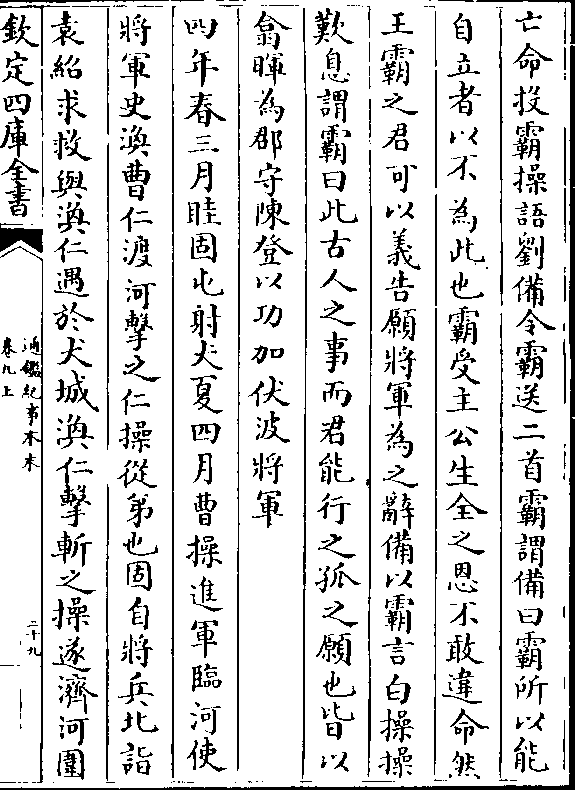 亡命投霸操語劉備令霸送二首霸謂備曰霸所以能
自立者以不為此也霸受主公生全之恩不敢違命然
王霸之君可以義告願將軍為之辭備以霸言白操操
歎息謂霸曰此古人之事而君能行之孤之願也皆以
翕暉為郡守陳登以功加伏波將軍
四年春三月眭固屯射犬夏四月曹操進軍臨河使
將軍史渙曹仁渡河擊之仁操從弟也固自將兵北詣
袁紹求救與渙仁遇於犬城渙仁擊斬之操遂濟河圍
欽定四庫全書
通鑑紀事本末
卷九上
二十九